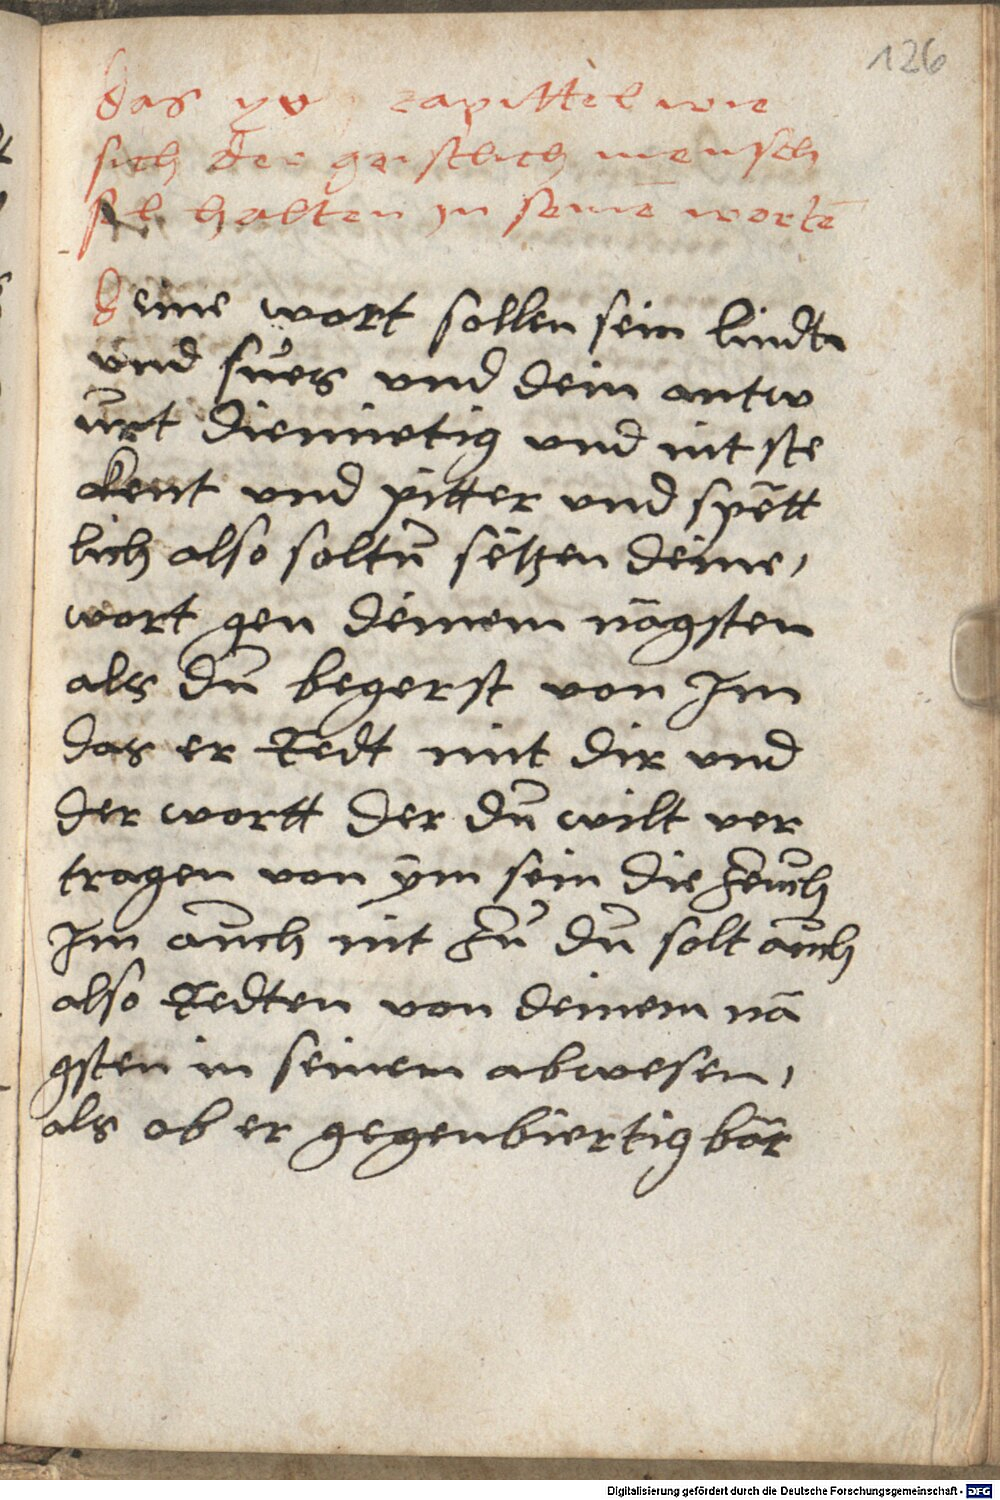 126
das xv capittel wie
sich der geistlich mensch
sol halten yn seinē wortē
Deine wort sollen sein lindt
und sues und dein antw
urt diemietig und nit ste
chent und pitter und spött
lich also soltu setzen deine,
wort gen deinem nägsten
als du begerst von Im
das er Redt mit dir und
der wortt der du wilt ver
tragen von ym sein die zeuch
Im auch nit zu du solt auch
also Redten von deinem nä
gsten in seinem abwesen,
als ob er gegenbiertig bär
Digitalisierung gefördert durch die Deutsche Forschungsgemeinschaft - DFG